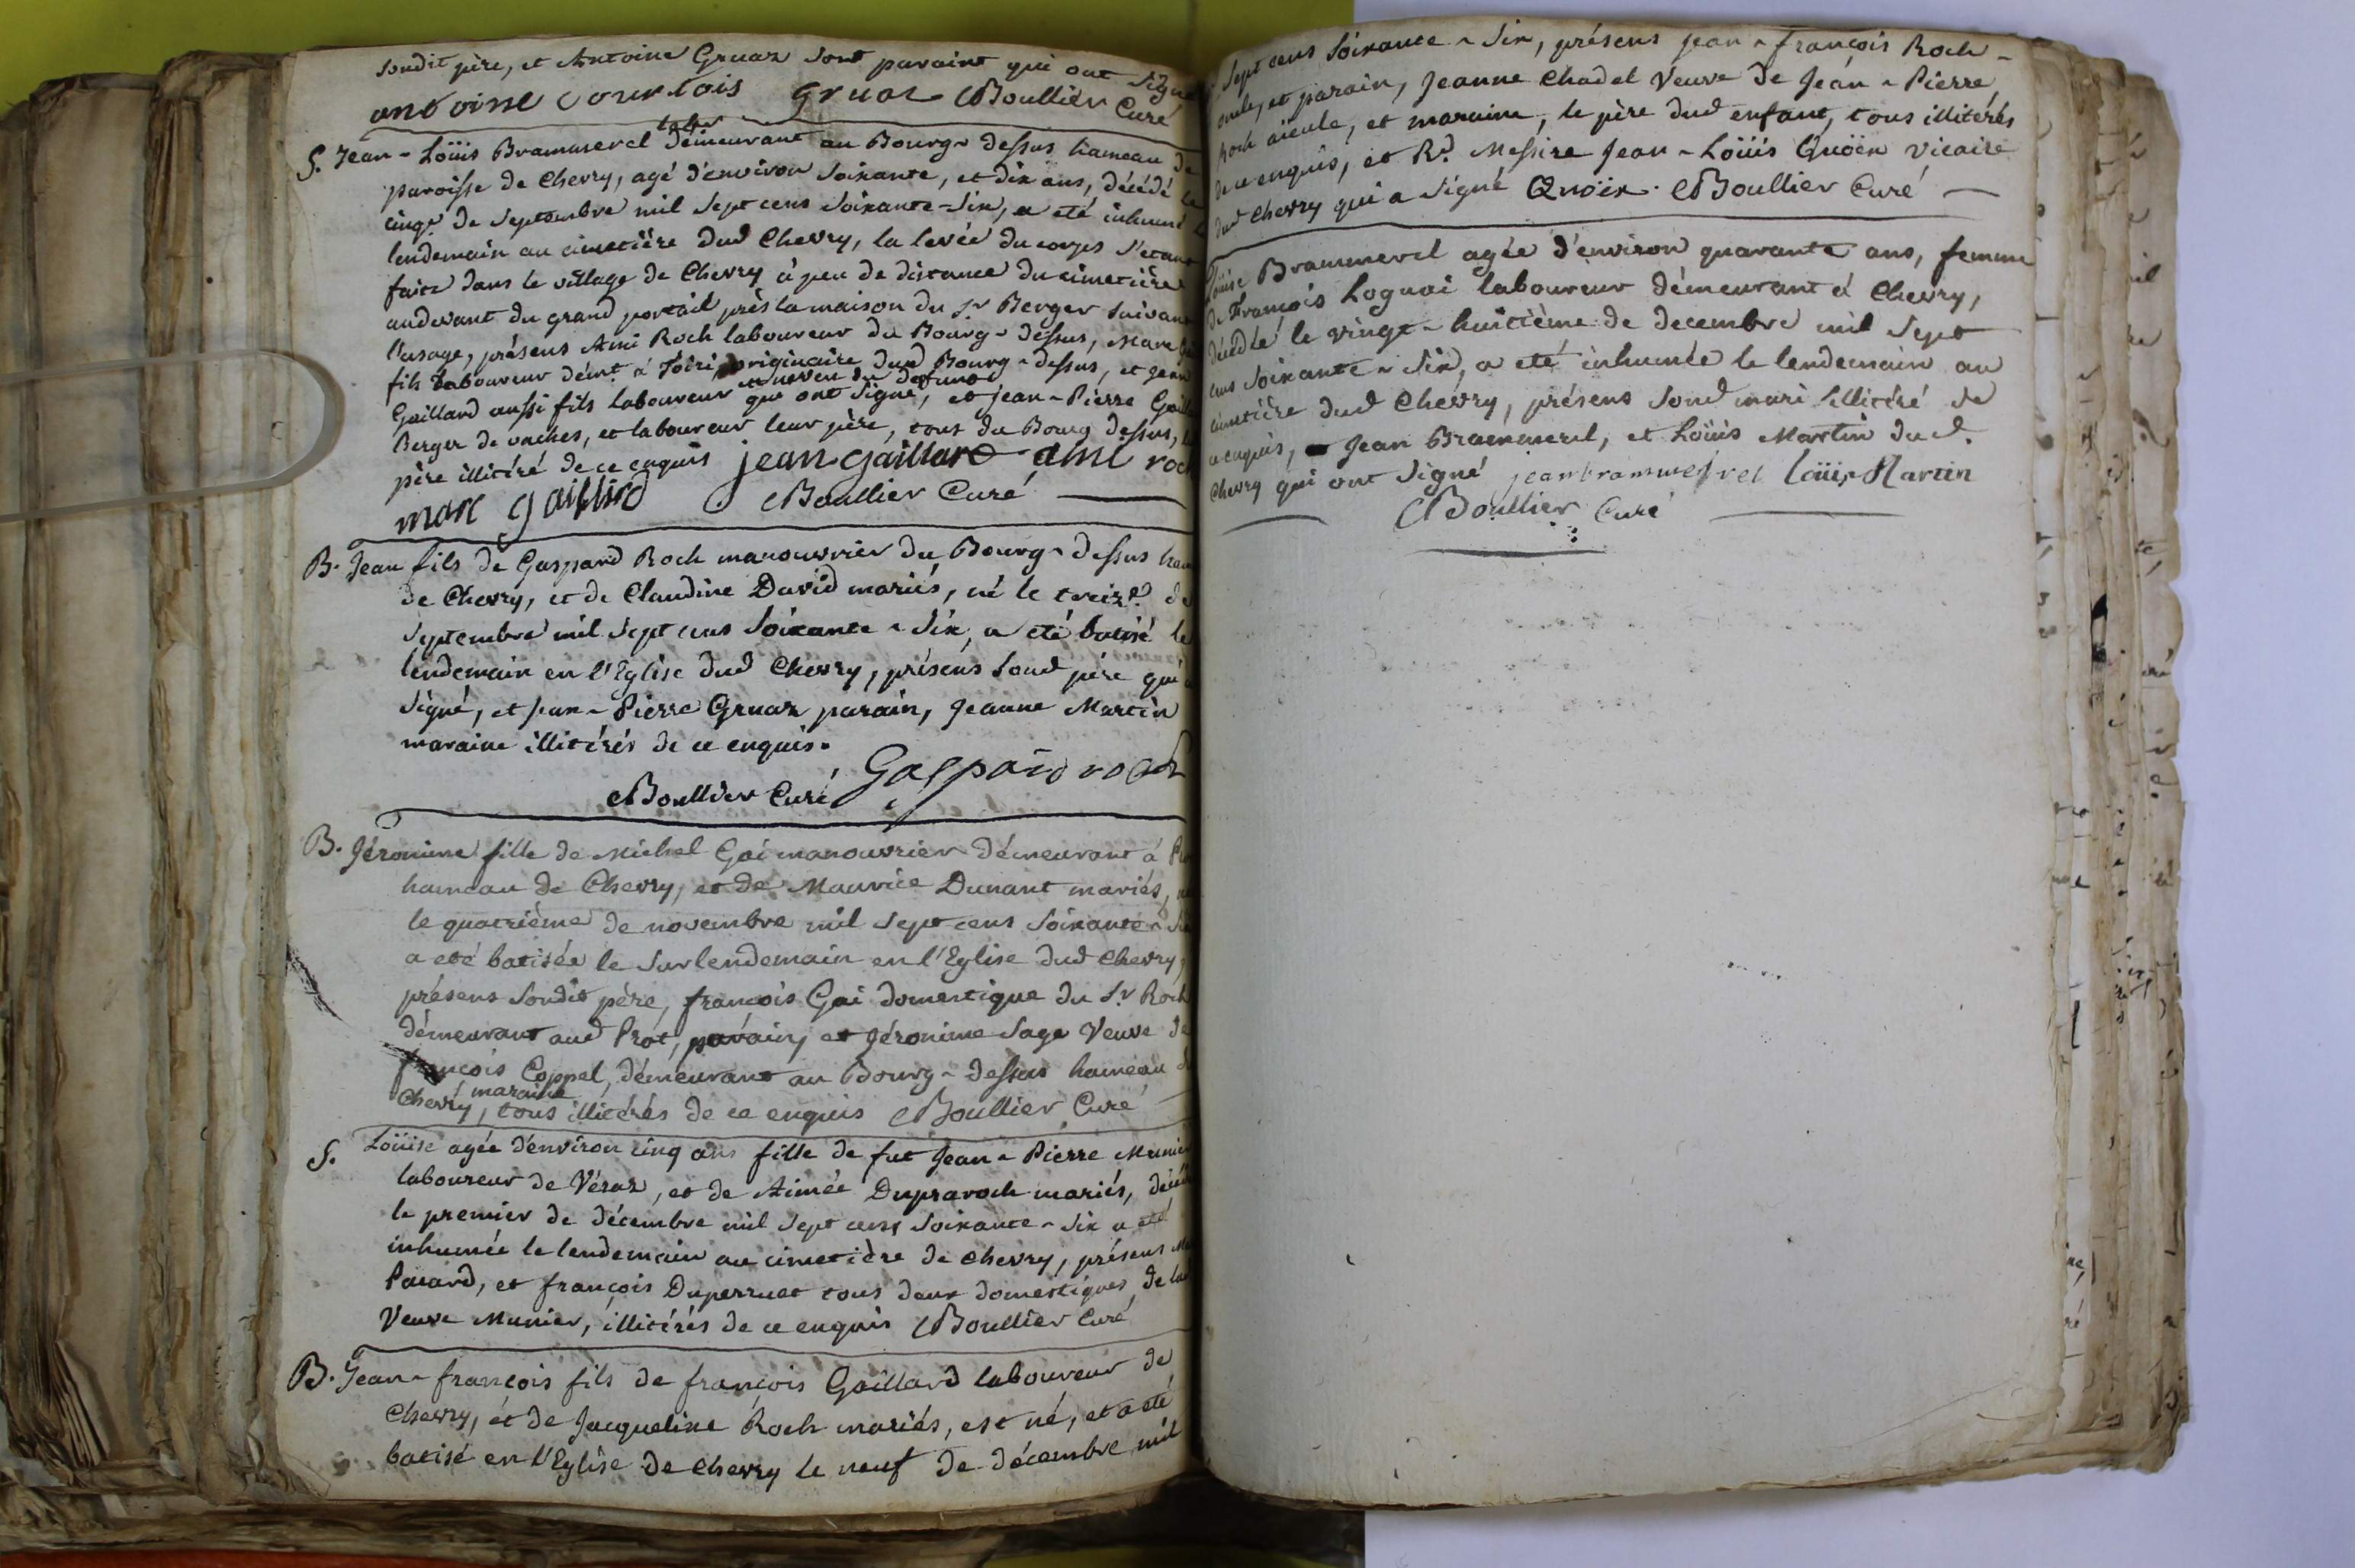 sondit père, et Antoine Gruaz sont parains qui ont signé
antoine courtois gruaz Boullier Curé
S. Jean-Loüis Brammerel labr démeurant au Bourg-dessus hameau de
paroisse de Chevry, agé d'environ soixante, et dix ans, décédé le
cinqe de septembre mil sept cens soixante-six, a eté inhumé le
lendemain au cimetière dud Chevry, la levée du corps s'étant
faite dans le village de Chevry à peu de distance du cimetière
audevant du grand portail près la maison du Sr Berger suivant
l'usage, présens Ami Roch laboureur du Bourg-dessus, Marc
fils laboureur démt à Toiri, originaire dud Bourg-dessus, et Jean
neveu du defunct
Gaillard aussi fils laboureur qui ont signé, et Jean-Pierre
Berger de vaches, et laboureur leur père, tous du Bourg dessus, le
père illitéré de ce enquis jean gaillard ami roch
marc gaillard Boullier Curé
B. Jean fils de Gaspard Roch manouvrier du Bourg-dessus
de Chevry, et de Claudine David mariés, né le treize de
septembre mil sept cens soixante-six, a eté batisé le
lendemain en l'Eglise dud Chevry, présens soud père qui a
signé, et jean-Pierre Gruaz parain, Jeanne Martin
maraine illitérés de ce enquis.
Boullier Curé Gaspard roch
B. Jéronime fille de Michel Gai manouvrier démeurant à
hameau de Chevry, et de Maurice Dunant mariés, née
le quatrième de novembre mil sept cens soixante-six
a eté batisée le surlendemain en l'Eglise dud Chevry,
présens sondit père, françois Gai domestique du Sr Roch
démeurant aud Prot, parain, et Jéronime Sage Veuve de
françois Coppel, démeurant au Bourg-dessus hameau de
Chevry, maraine, tous illitérés de ce enquis Boullier Curé
S. Loüise agée d'environ cinq ans fille de fut Jean-Pierre Munier
laboureur de Véraz, et de Aimée Dupraroch mariés, décédée
le premier de décembre mil sept cens soixante-six a eté
inhumée le lendemain au cimetière de Chevry, présens
Pacard, et françois Duperruet tous deux domestiques de lad
Veuve Munier, illitérés de ce enquis Boullier Curé
B. Jean-françois fils de françois Gaillard laboureur de
Chevry, et de Jacqueline Roch mariés, est né, et a eté
batisé en l'Eglise de Chevry le neuf de décembre mil
sept cens soixante-six, présens Jean-françois Roch-
oncle, et parain, Jeanne Chadel Veuve de Jean-Pierre
Roch aïeule, et maraine, le père dud enfant, tous illitérés
de ce enquis, et Rd. Messire Jean-Loüis Quöex vicaire
dud Chevry qui a signé Quöex. Boullier Curé
Loüise Brammerel agée d'environ quarante ans, femme
de François Loguai laboureur démeurant à Chevry,
décédée le vingt-huitième de decembre mil sept
cens soixante-six, a eté inhumée le lendemain au
cimetière dud Chevry, présens soud mari illitéré de
ce enquis, Jean Brammerel, et Loüis Martin dud.
Chevry qui ont signé jean brammerel Loüis Martin
Boullier Curé